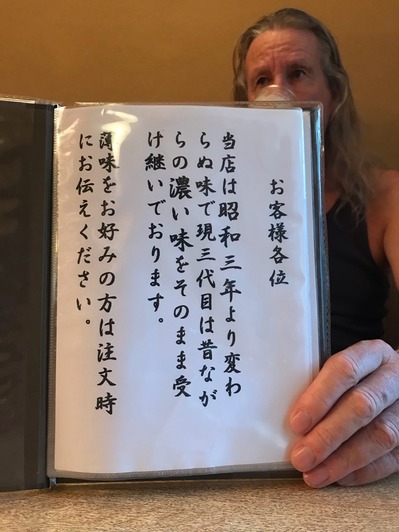 お客様各位
当店は昭和三年より変わ
らぬ味で現三代目は昔なが
らの濃い味をそのまま受
け継いでおります。
薄味をお好みの方は注文時
にお伝えください。